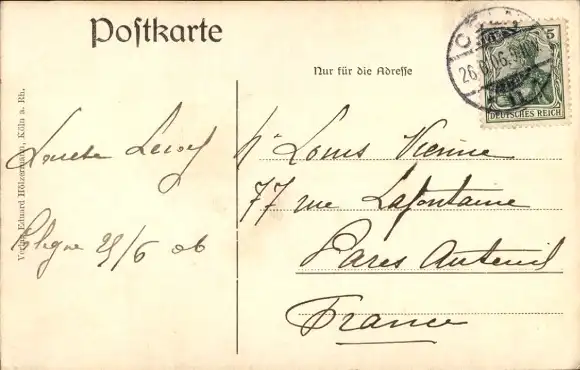 Postkarte
Nur für die Adresse
5
DEUTSCHES REICH
26.6.06.
Verlag Eduard Hölzermann, Köln a. Rh.
Cologne 25/6 06
Mr Louis Vienne
77 rue Lafontaine
Pares Auteuil
France